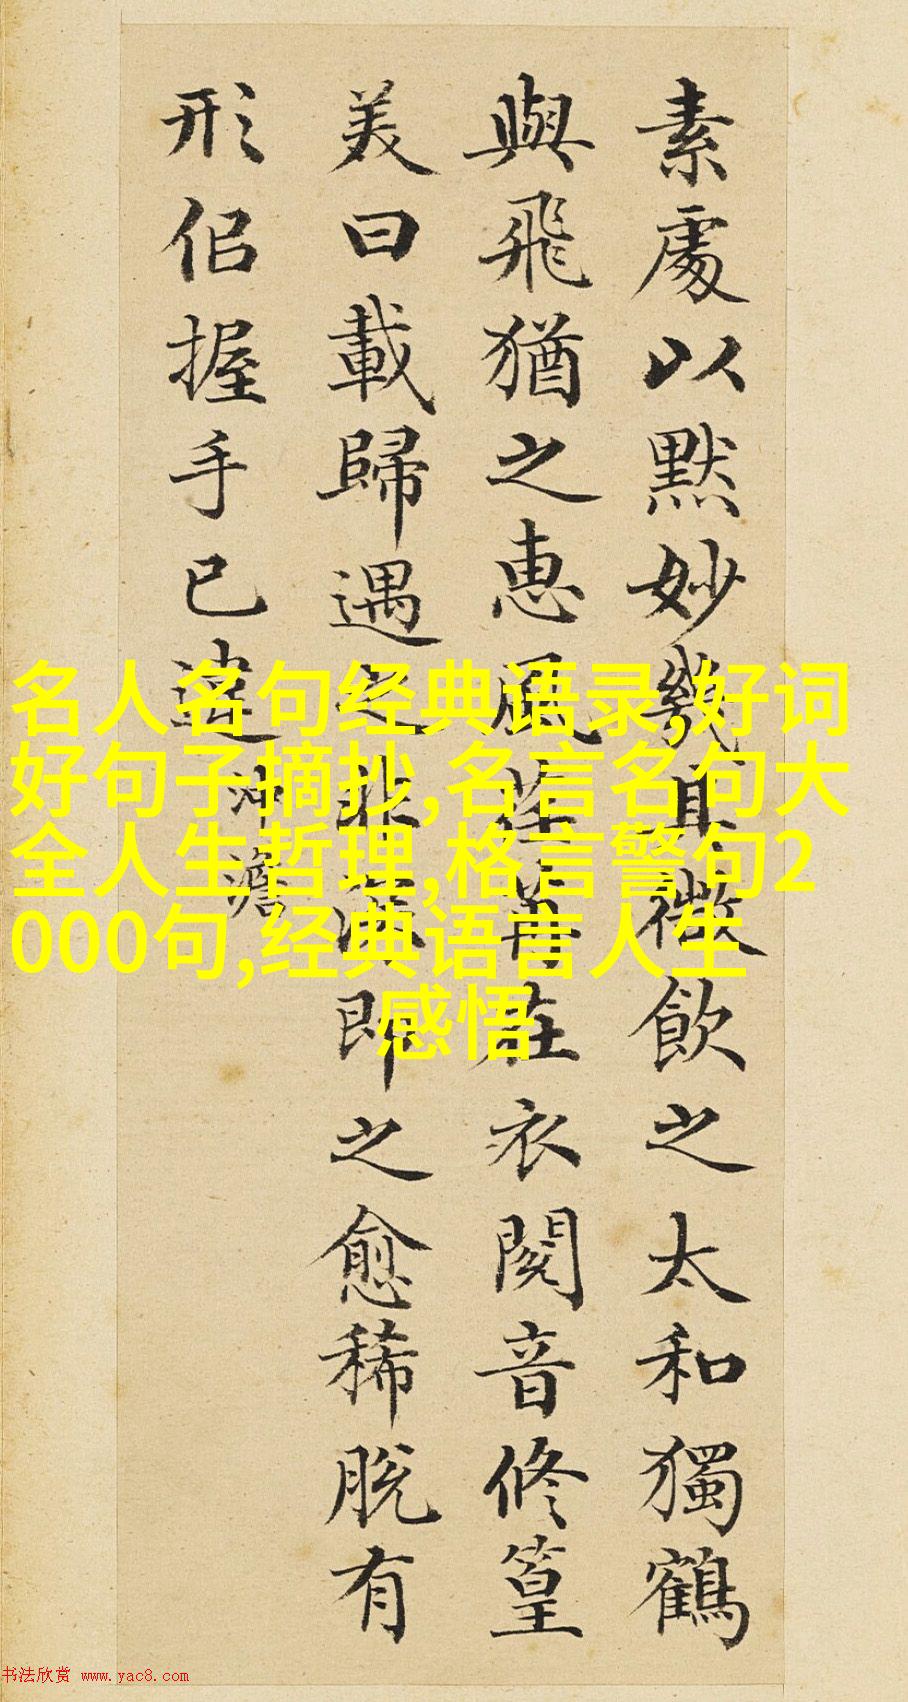 素處以默妙幾其微飲之太和獨鶴
與飛猶之惠風荏苒在衣閱音修篁
美曰載歸遇之匪深即之愈稀脫有
形佀握手已違
沖澹
名人名句经典语录,好词
好句子摘抄,名言名句大
全人生哲理,格言警句2
000句,经典语言人生
感悟
书法欣赏 www.yac8.com